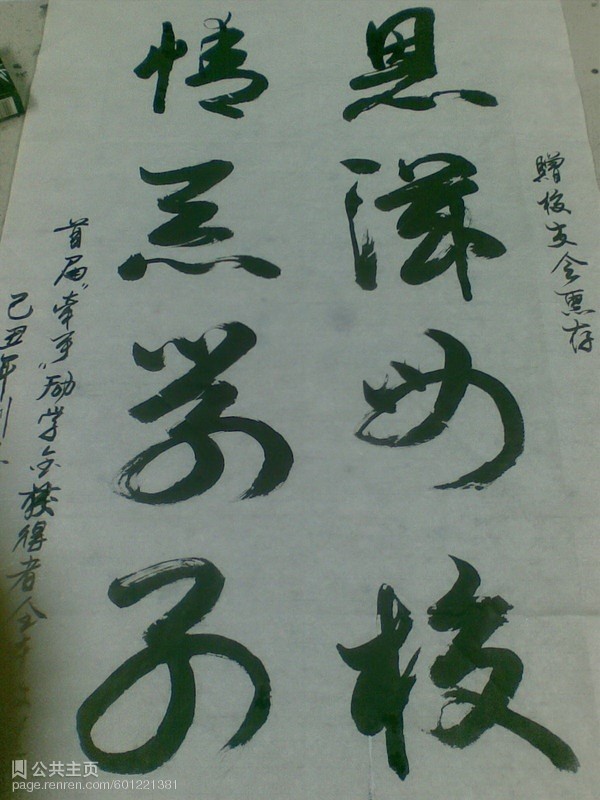 赠校友会惠存
恩泽母校
情系学子
首届"牵手"励学金获得者全
己丑年
公共主页
page.renren.com/601221381